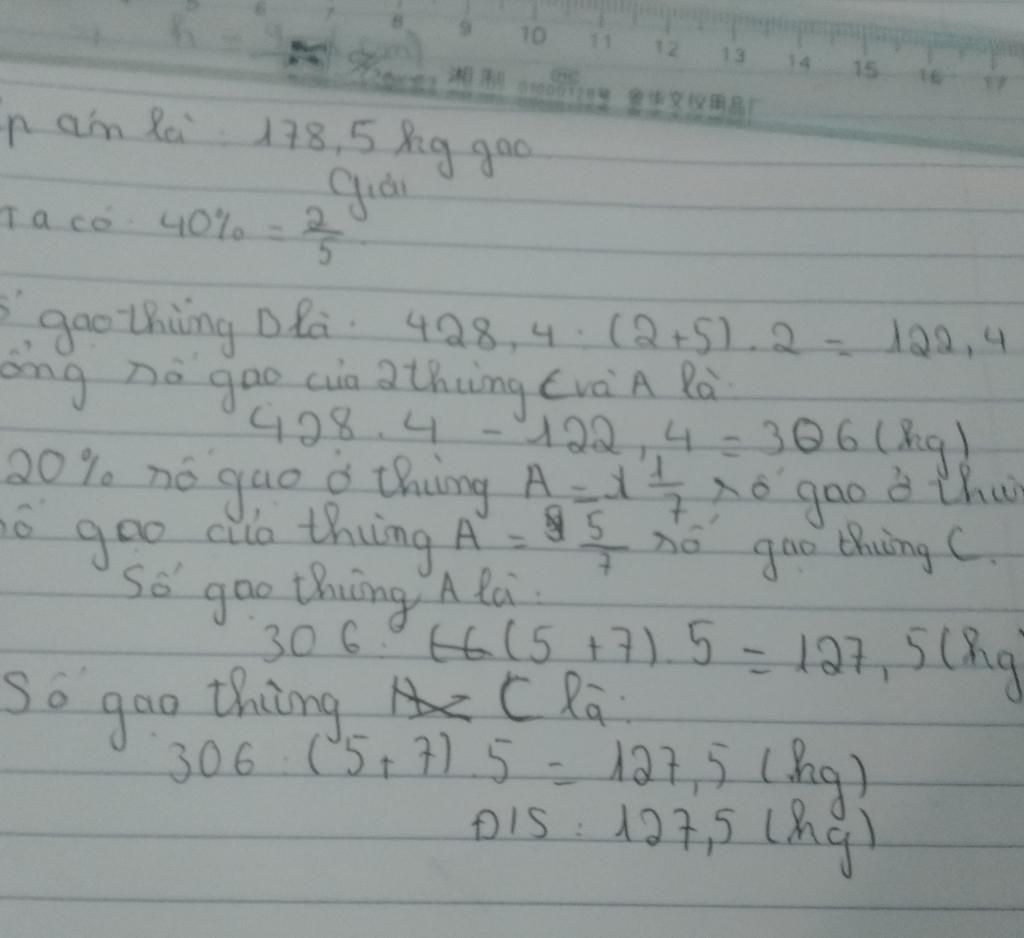 6 7 8 9 10 11 12 13 14 15 16 17
湘 制 01000128号 金华文仪用品厂
p án là 178,5 kg gạo
Giải
Ta có. 40% = 2/5
gạo thùng D là. 428,4 : (2+5) . 2 = 122,4
ổng số gạo của 2 thùng C và A là:
428.4 - 122,4 = 306 (kg)
20% số gạo ở thùng A = 1/7 số gạo ở thù
số gạo của thùng A = 5/7 số gạo thùng C.
Số gạo thùng A là:
306 : (5 + 7) . 5 = 127,5 (kg
Số gạo thùng C là:
306 : (5 + 7) . 5 = 127,5 (kg)
Đ/S : 127,5 (kg)